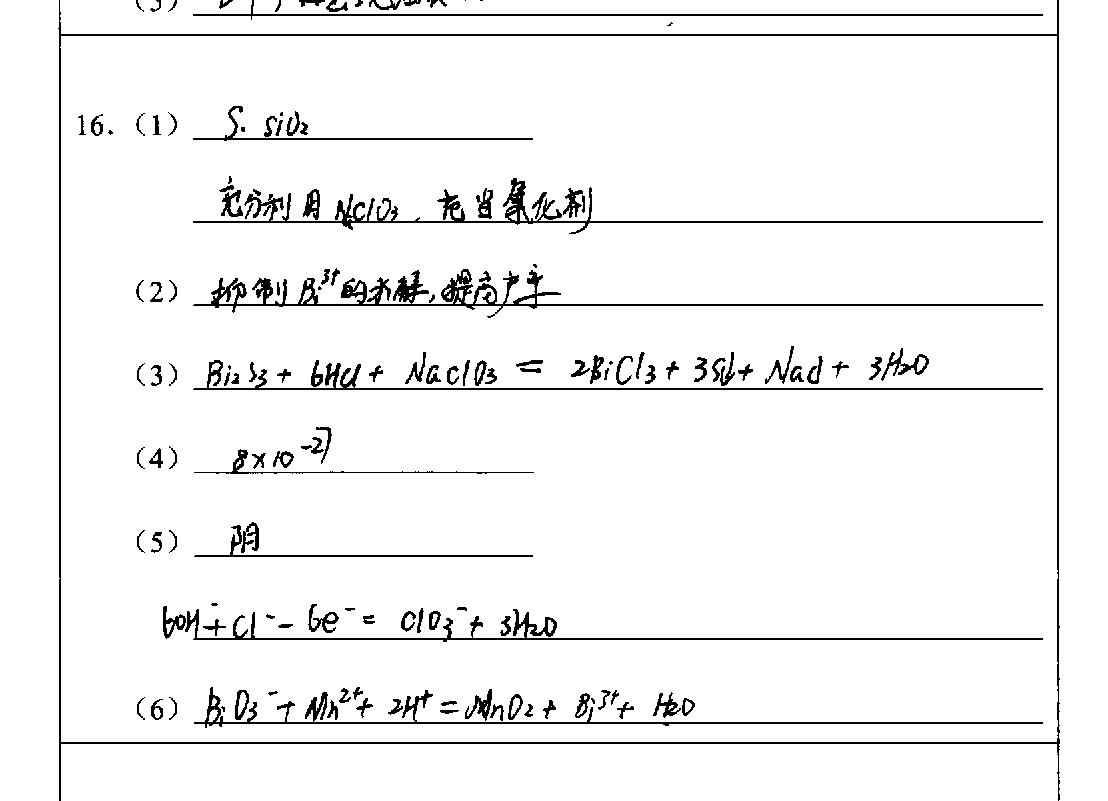 (3)
16.（1） S. SiO₂
充分利用NaClO₃，充当氧化剂
（2） 抑制Bi³⁺的水解，提高产率
（3） Bi₂S₃ + 6HCl + NaClO₃ = 2BiCl₃ + 3S↓ + NaCl + 3H₂O
（4） 8×10⁻²⁷
（5） 阴
6OH⁻ + Cl⁻ - 6e⁻ = ClO₃⁻ + 3H₂O
（6） BiO₃⁻ + Mn²⁺ + 2H⁺ = MnO₂ + Bi³⁺ + H₂O